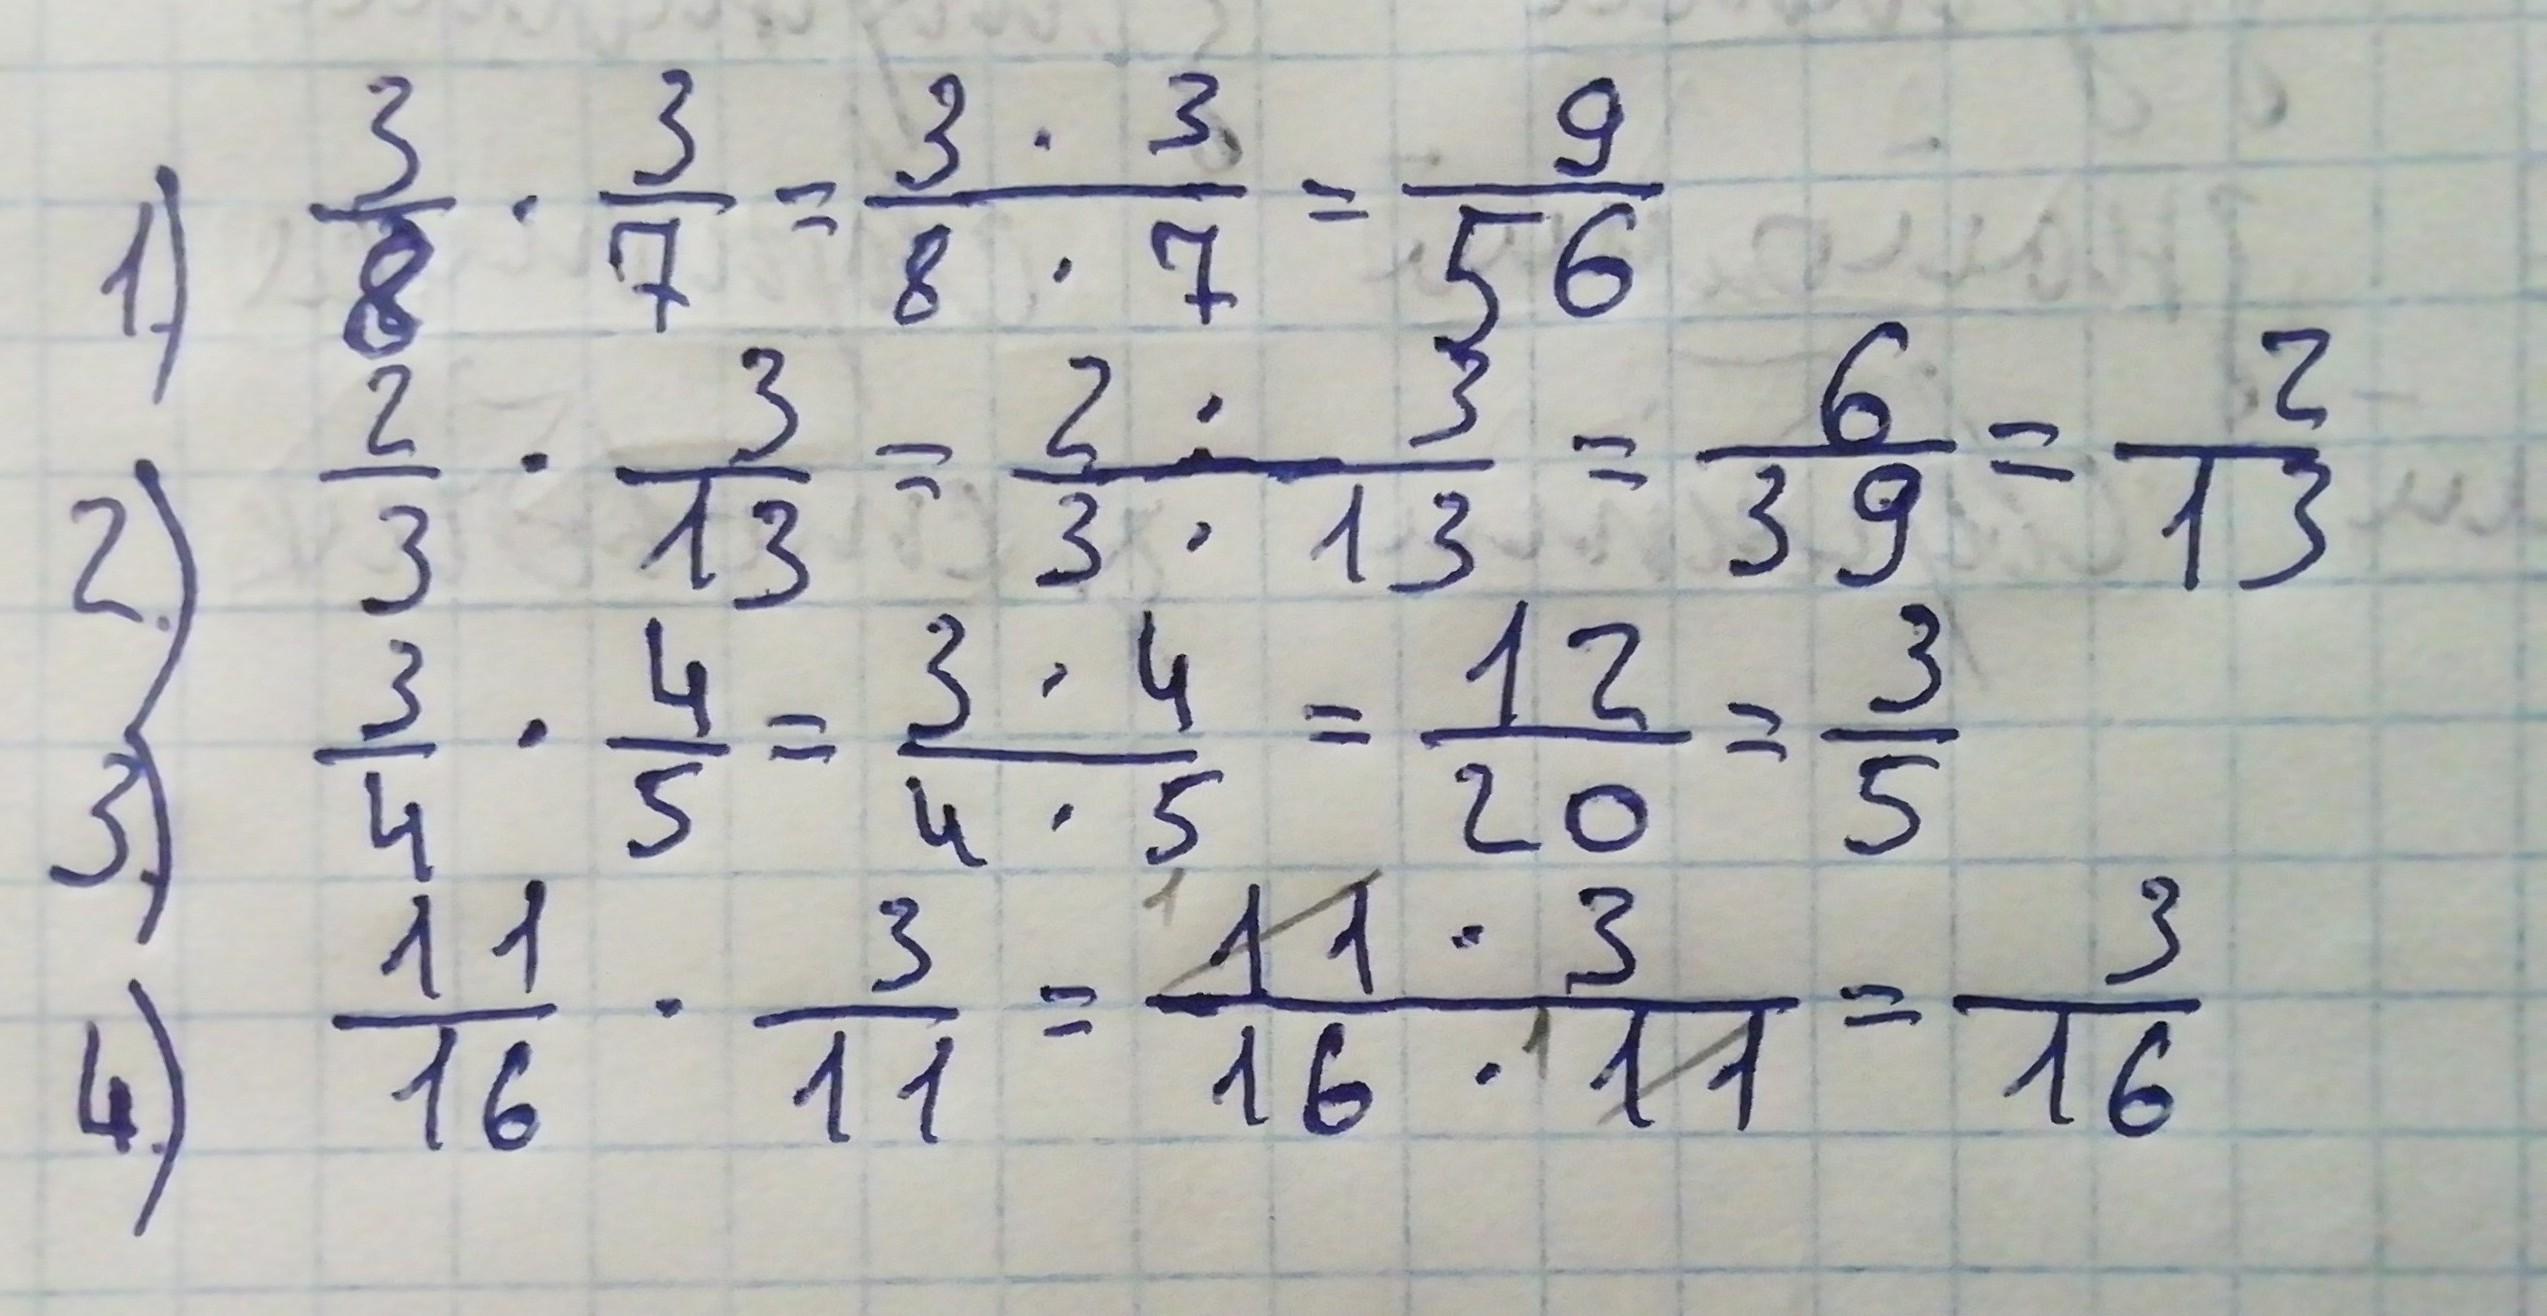 1) 3/8 · 3/7 = (3 · 3)/(8 · 7) = 9/56
2) 2/3 · 3/13 = (2 · 3)/(3 · 13) = 6/39 = 2/13
3) 3/4 · 4/5 = (3 · 4)/(4 · 5) = 12/20 = 3/5
4) 11/16 · 3/11 = (11 · 3)/(16 · 11) = 3/16